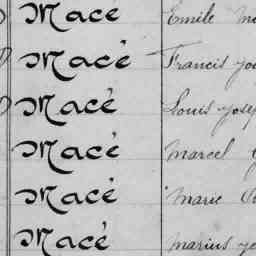 Macé Emile
Macé Francis
Macé Louis Josep
Macé Marcel
Macé Marie
Macé Marius